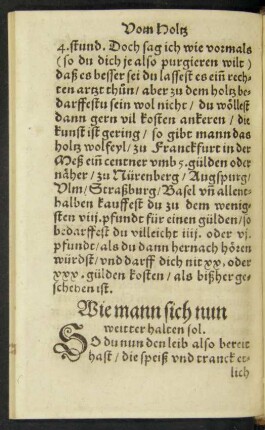 Vom Holtz
4. stund. Doch sag ich wie vormals
(so du dich je also purgieren wilt)
daß es besser sei du lassest es ein̄ rech-
ten artzt thůn/ aber zu dem holtz be-
darffestu sein wol nicht/ du wöllest
dann gern vil kosten ankeren/ die
kunst ist gering/ so gibt mann das
holtz wolfeyl/ zu Franckfurt in der
Meß ein centner vmb 5. gülden oder
näher/ zu Nürenberg/ Augspurg/
Vlm/ Straßburg/ Basel vn̄ allent-
halben kauffest du zu dem wenig-
sten viij. pfundt für einen gülden/ so
bedarffest du villeicht iiij. oder vj.
pfundt/ als du dann hernach hören
würdst/ vnd darff dich nit xx. oder
xxx. gülden kosten/ als bißher ge-
schehen ist.
Wie mann sich nun
weitter halten sol.
SO du nun den leib also bereit
hast/ die speiß vnd tranck et-
lich